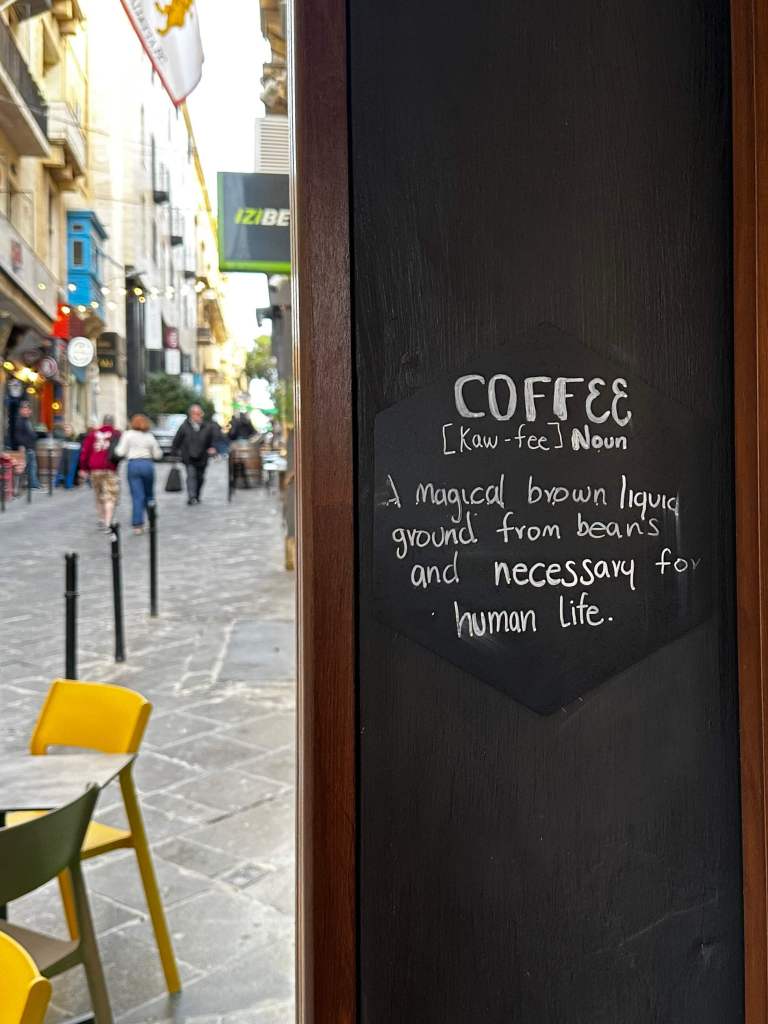 VALLETTA FC
IZIBE
COFFEE
[Kaw-fee] Noun
A magical brown liquid
ground from beans
and necessary for
human life.